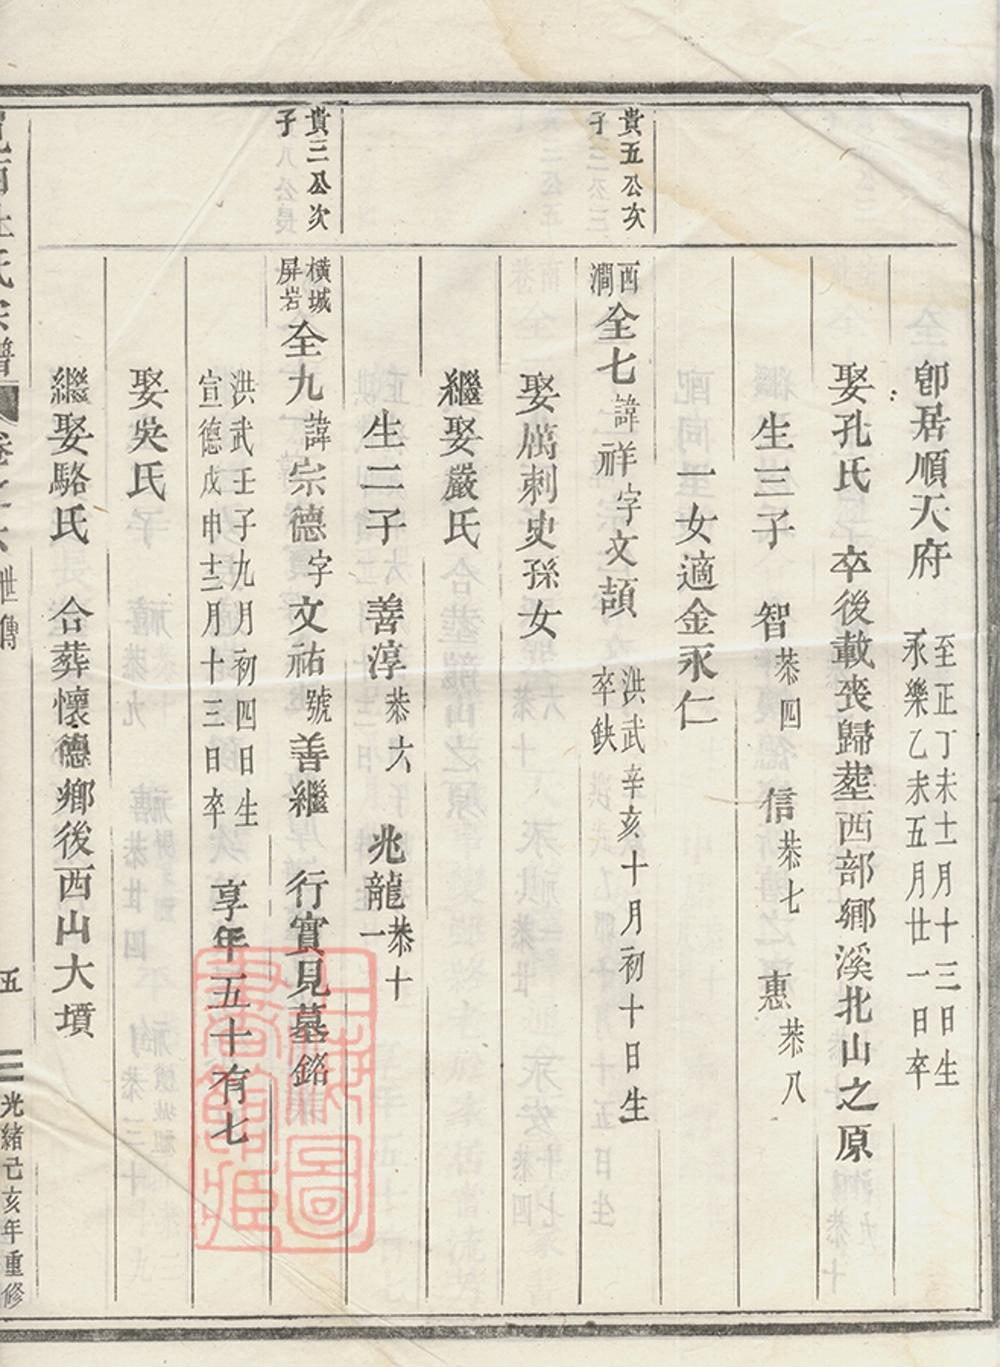 卽居順天府 至正丁未十二月十三日生 永樂乙未五月廿一日卒
娶孔氏 卒後載喪歸塟西部鄉溪北山之原
生三子 智恭四 信恭七 惠恭八
一女適金永仁
貴五公次子
西澗全七諱祥字文頡 洪武辛亥十月初十日生 卒缺
娶萬刺史孫女
繼娶嚴氏
生二子 善淳恭六 兆龍恭十一
貴三公次子
橫城屏岩全九諱宗德字文祐號善繼 行實見墓銘
洪武壬子九月初四日生 宣德戊申十二月十三日卒 享年五十有七
娶吳氏
繼娶駱氏 合葬懷德鄉後西山大墳
杜氏宗譜 卷之六 世傳 五 光緒己亥年重修
上海圖書館藏